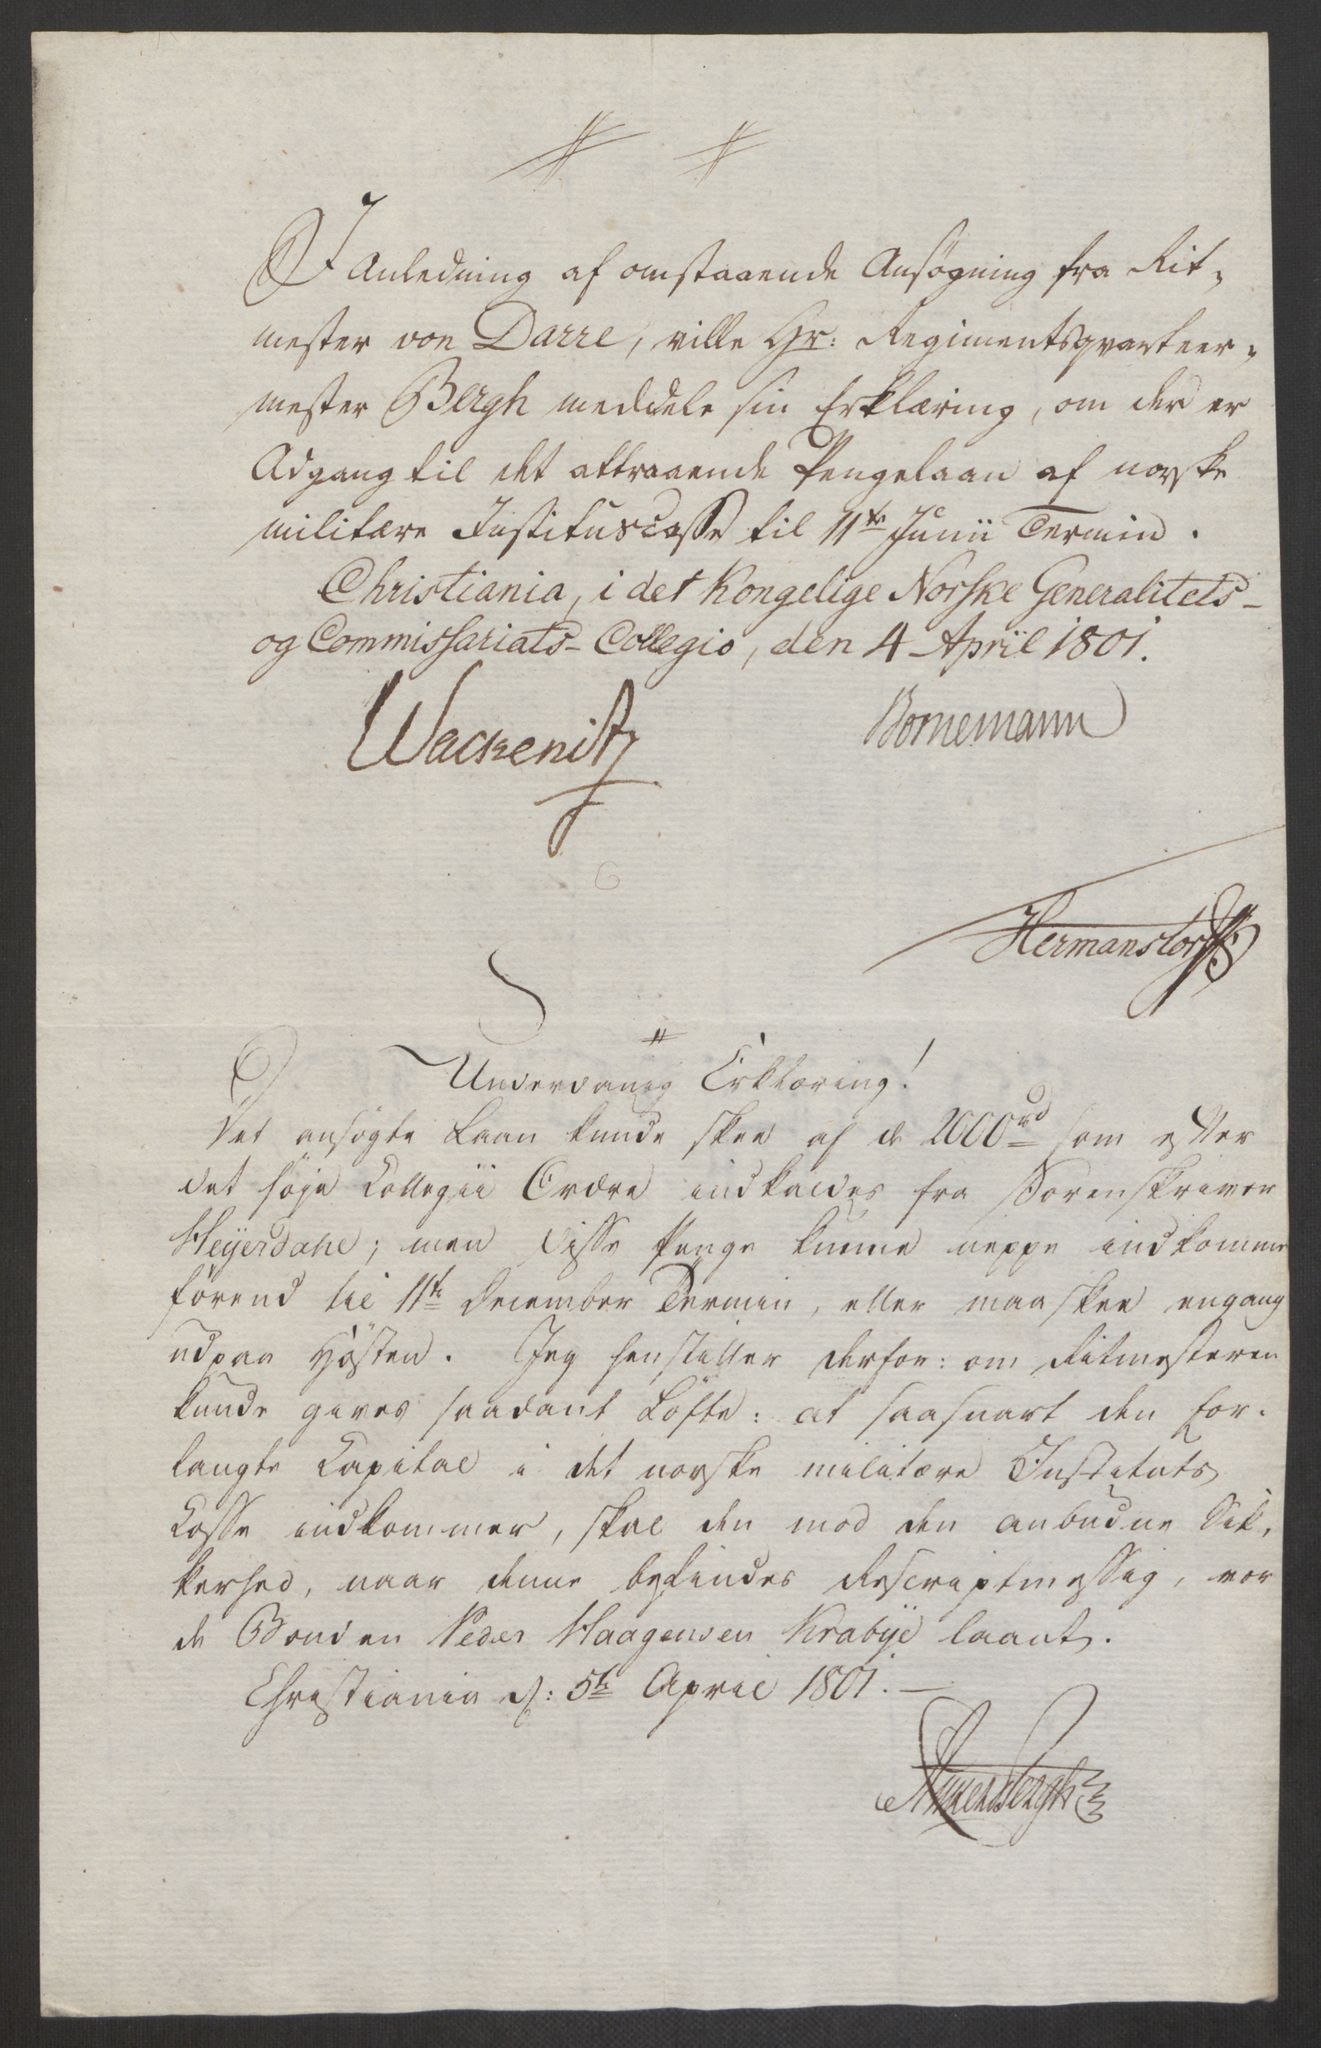 I Anledning af omstaaende Ansøgning fra Rit-
mester von Darre, ville Hr: Regimentsqvarteer-
mester Bergh meddele sin Erklæring, om der er
Adgang til det attraaende Pengelaan af norske
militære Institutscasse til 11te Junii Termin.
Christiania, i det Kongelige Norske Generalitets-
og Commissariats-Collegio, den 4 April 1801.
Wackenitz
Bornemann
Hermanstorff
Underdanig Erklæring!
Det ansøgte Laan kunde skee af de 2000 rd som efter
det høje Collegii Ordre indkaldes fra Sorenskriver
Heyerdahl; men disse Penge kunne neppe indkomme
førend til 11te December Termin, eller maaskee engang
udpaa Høsten. Jeg henstiller derfor: om Ritmesteren
kunde gives saadant Løfte: at saasnart den for-
langte Capital i det norske militære Instituts
Casse indkommer, skal den mod den anbudne Sik-
kerhed, naar denne befindes Rescriptmessig, vor-
de Bonden Peder Haagensen Krabye laant.
Christiania d: 5te April 1801.
Bergh